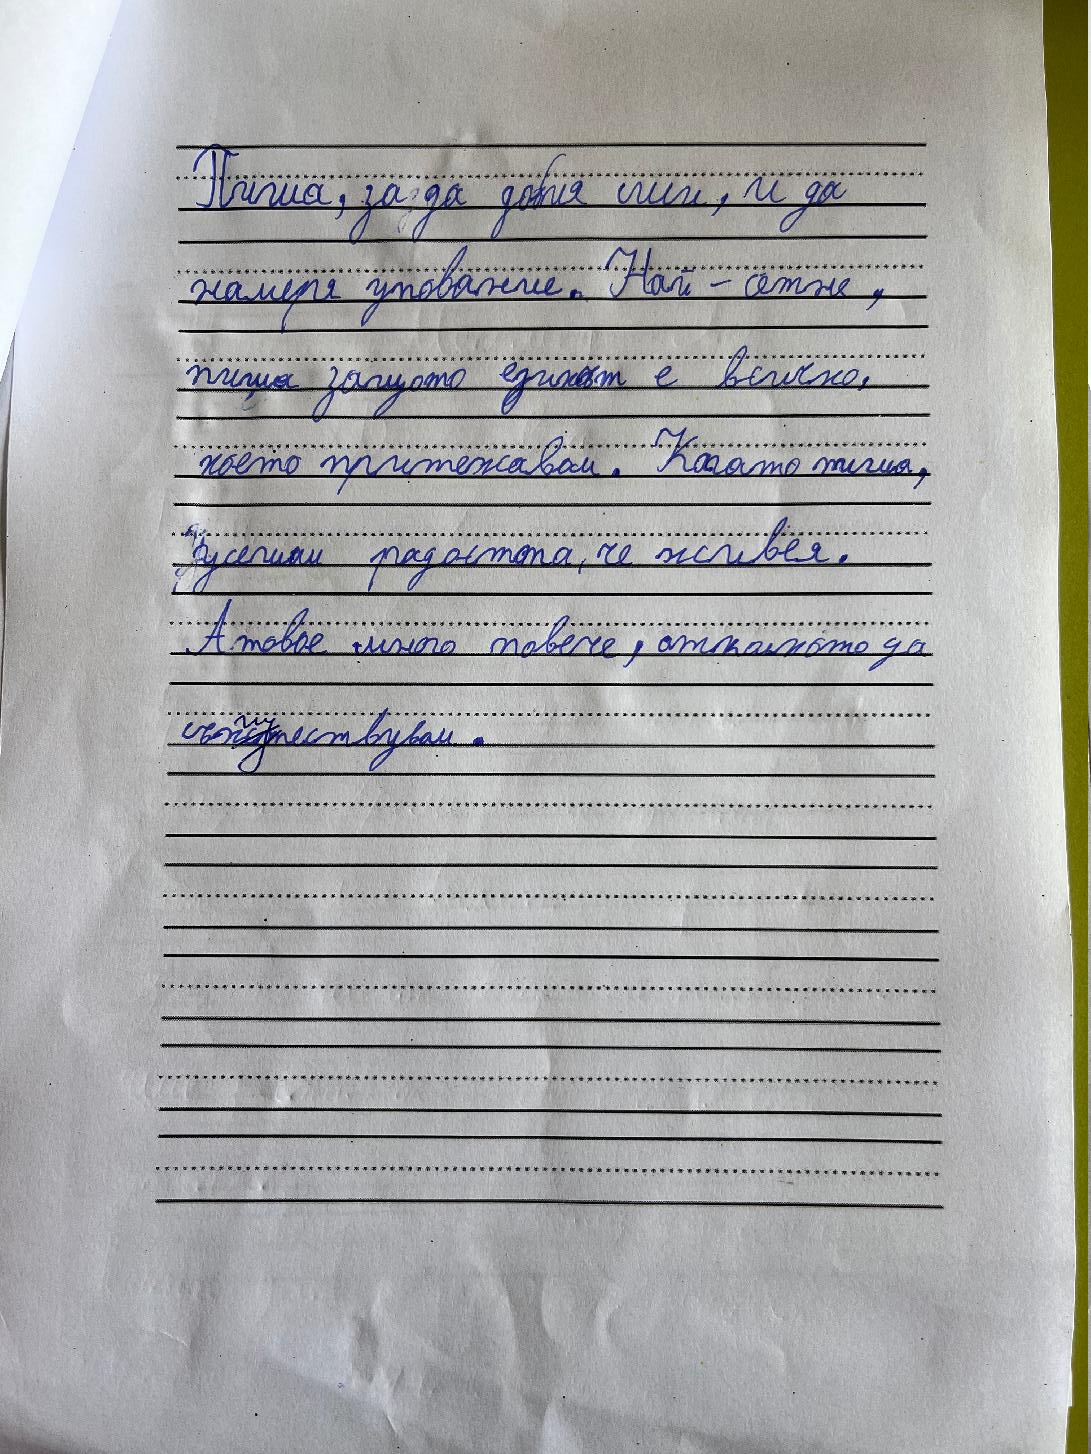 Пиша, за да добия сили, и да
намеря упование. Най-сетне,
пиша защото езикът е всичко,
което притежавам. Когато пиша,
усещам радостта, че живея.
А това е много повече, отколкото да
съществувам.